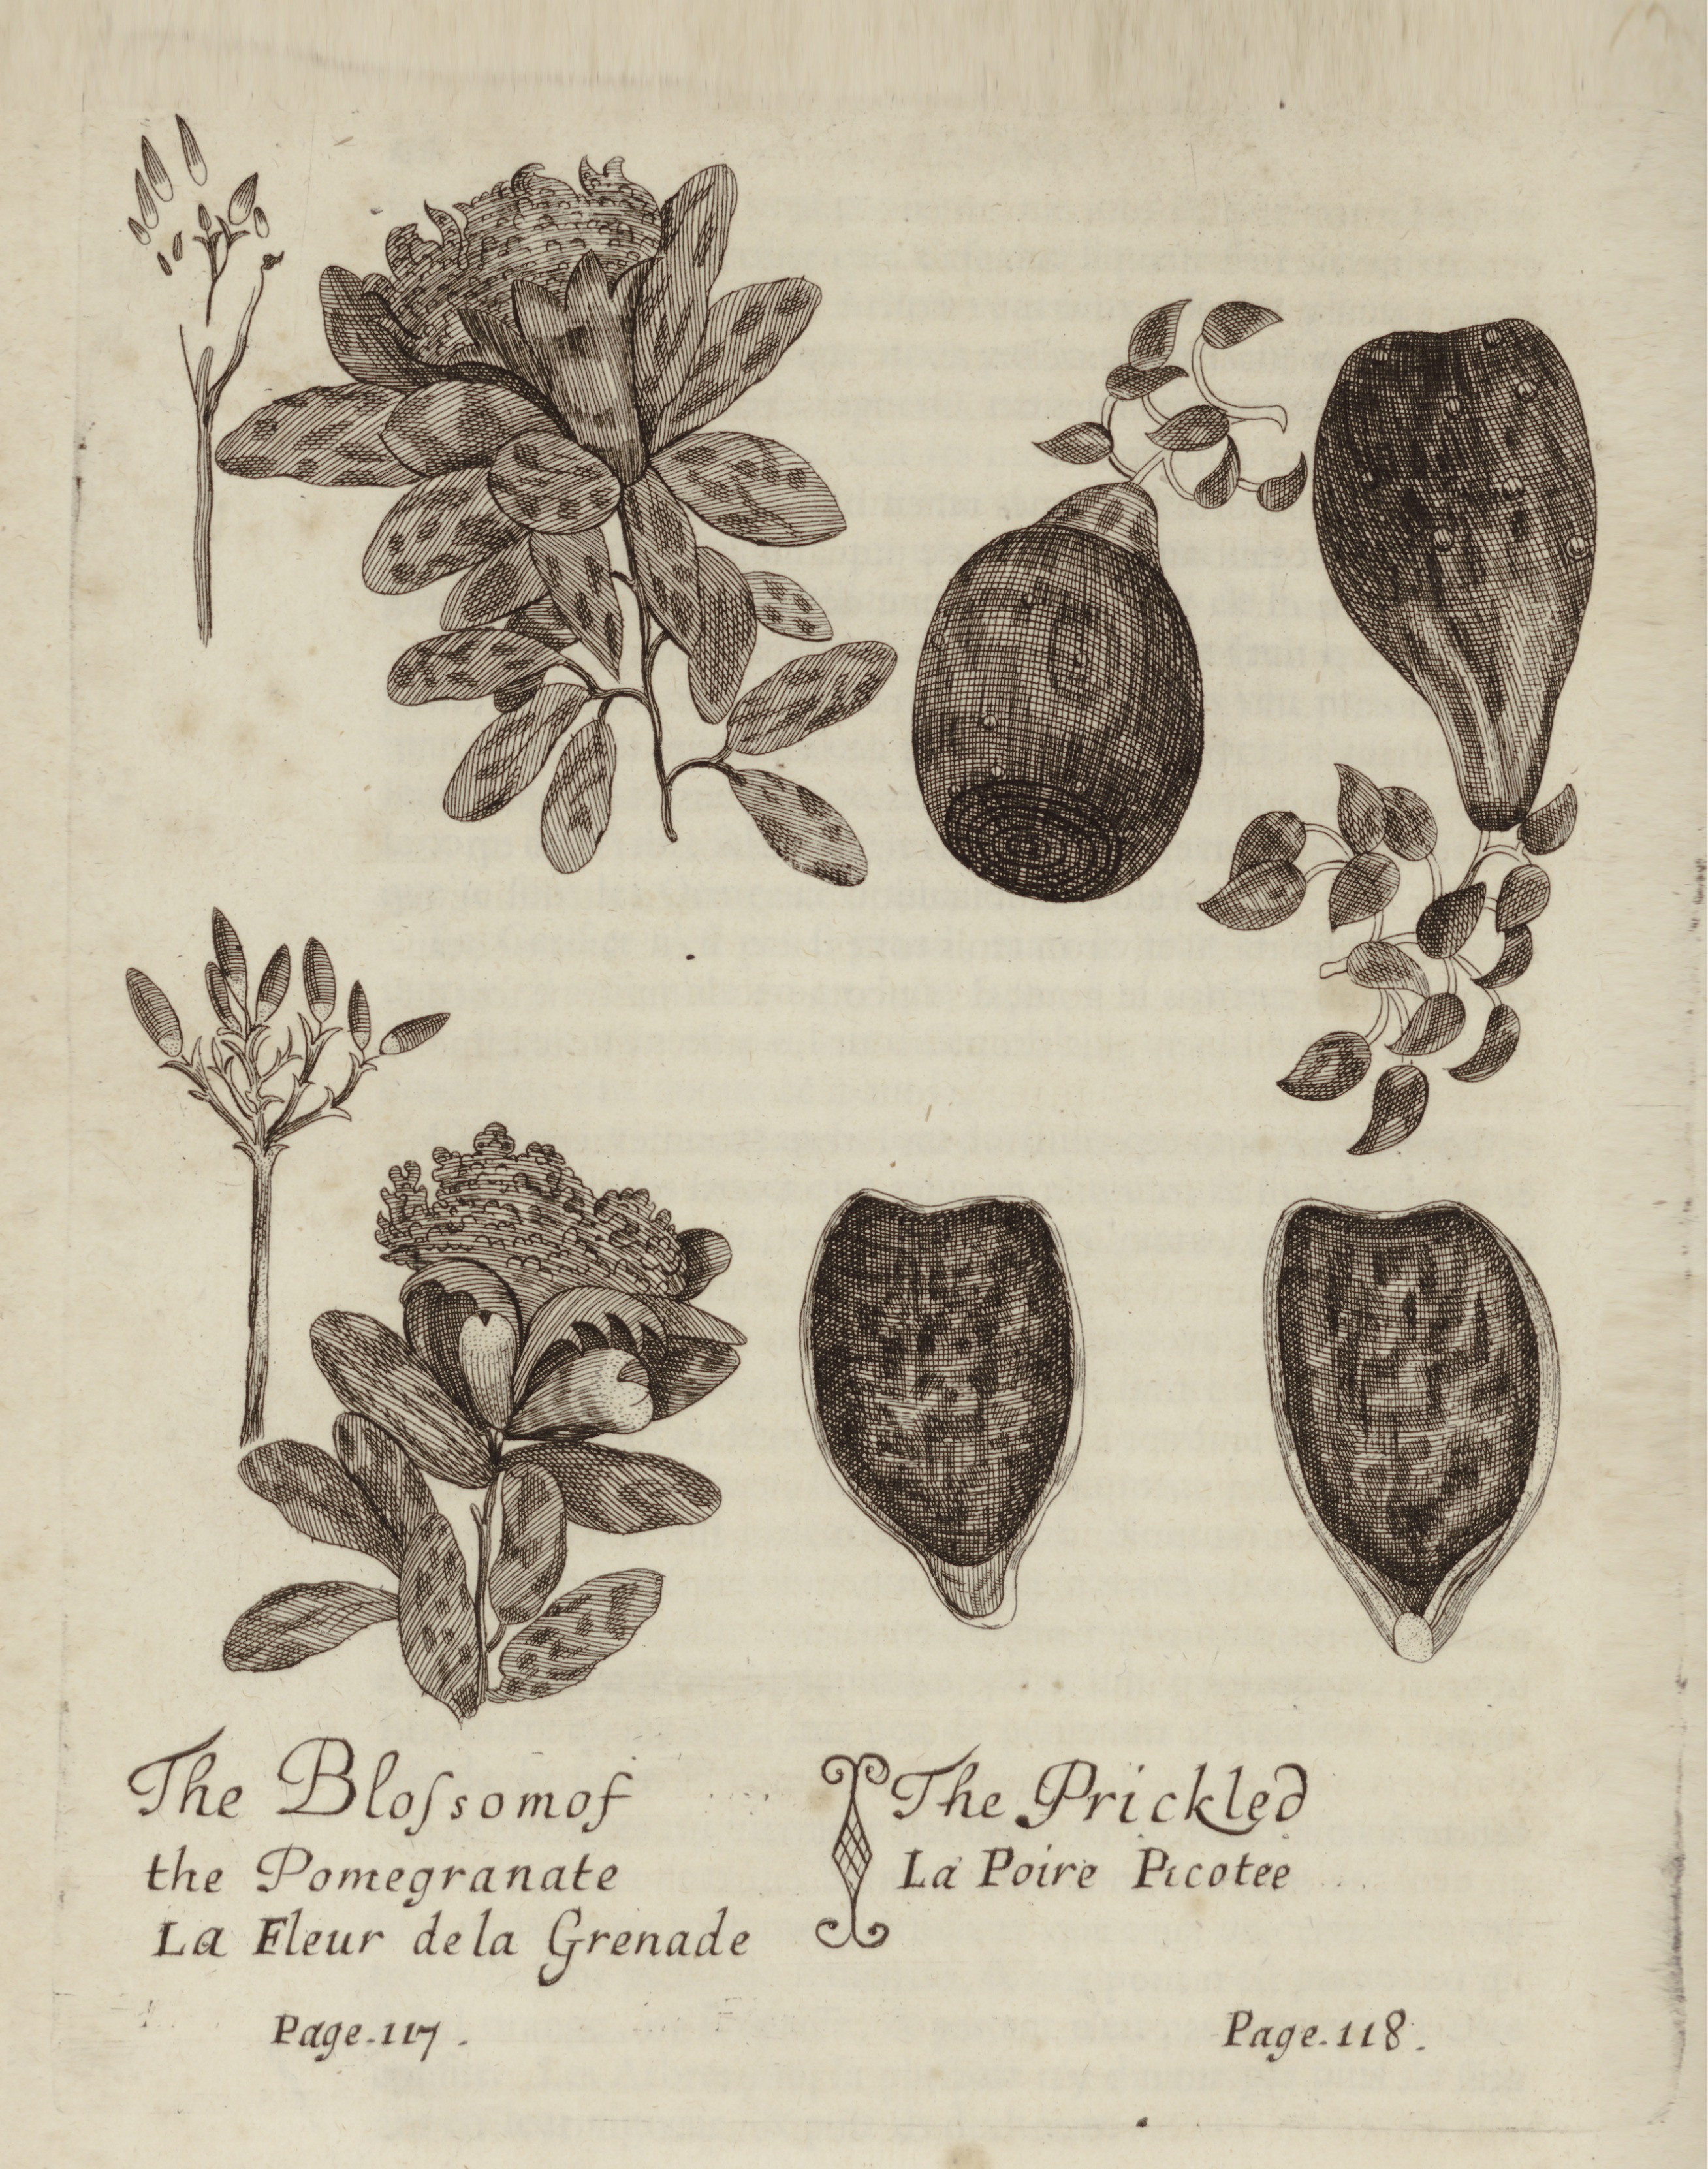 The Bloſsom of
the Pomegranate
La Fleur de la Grenade
Page. 117.
The Prickled
La Poire Picotee
Page. 118.